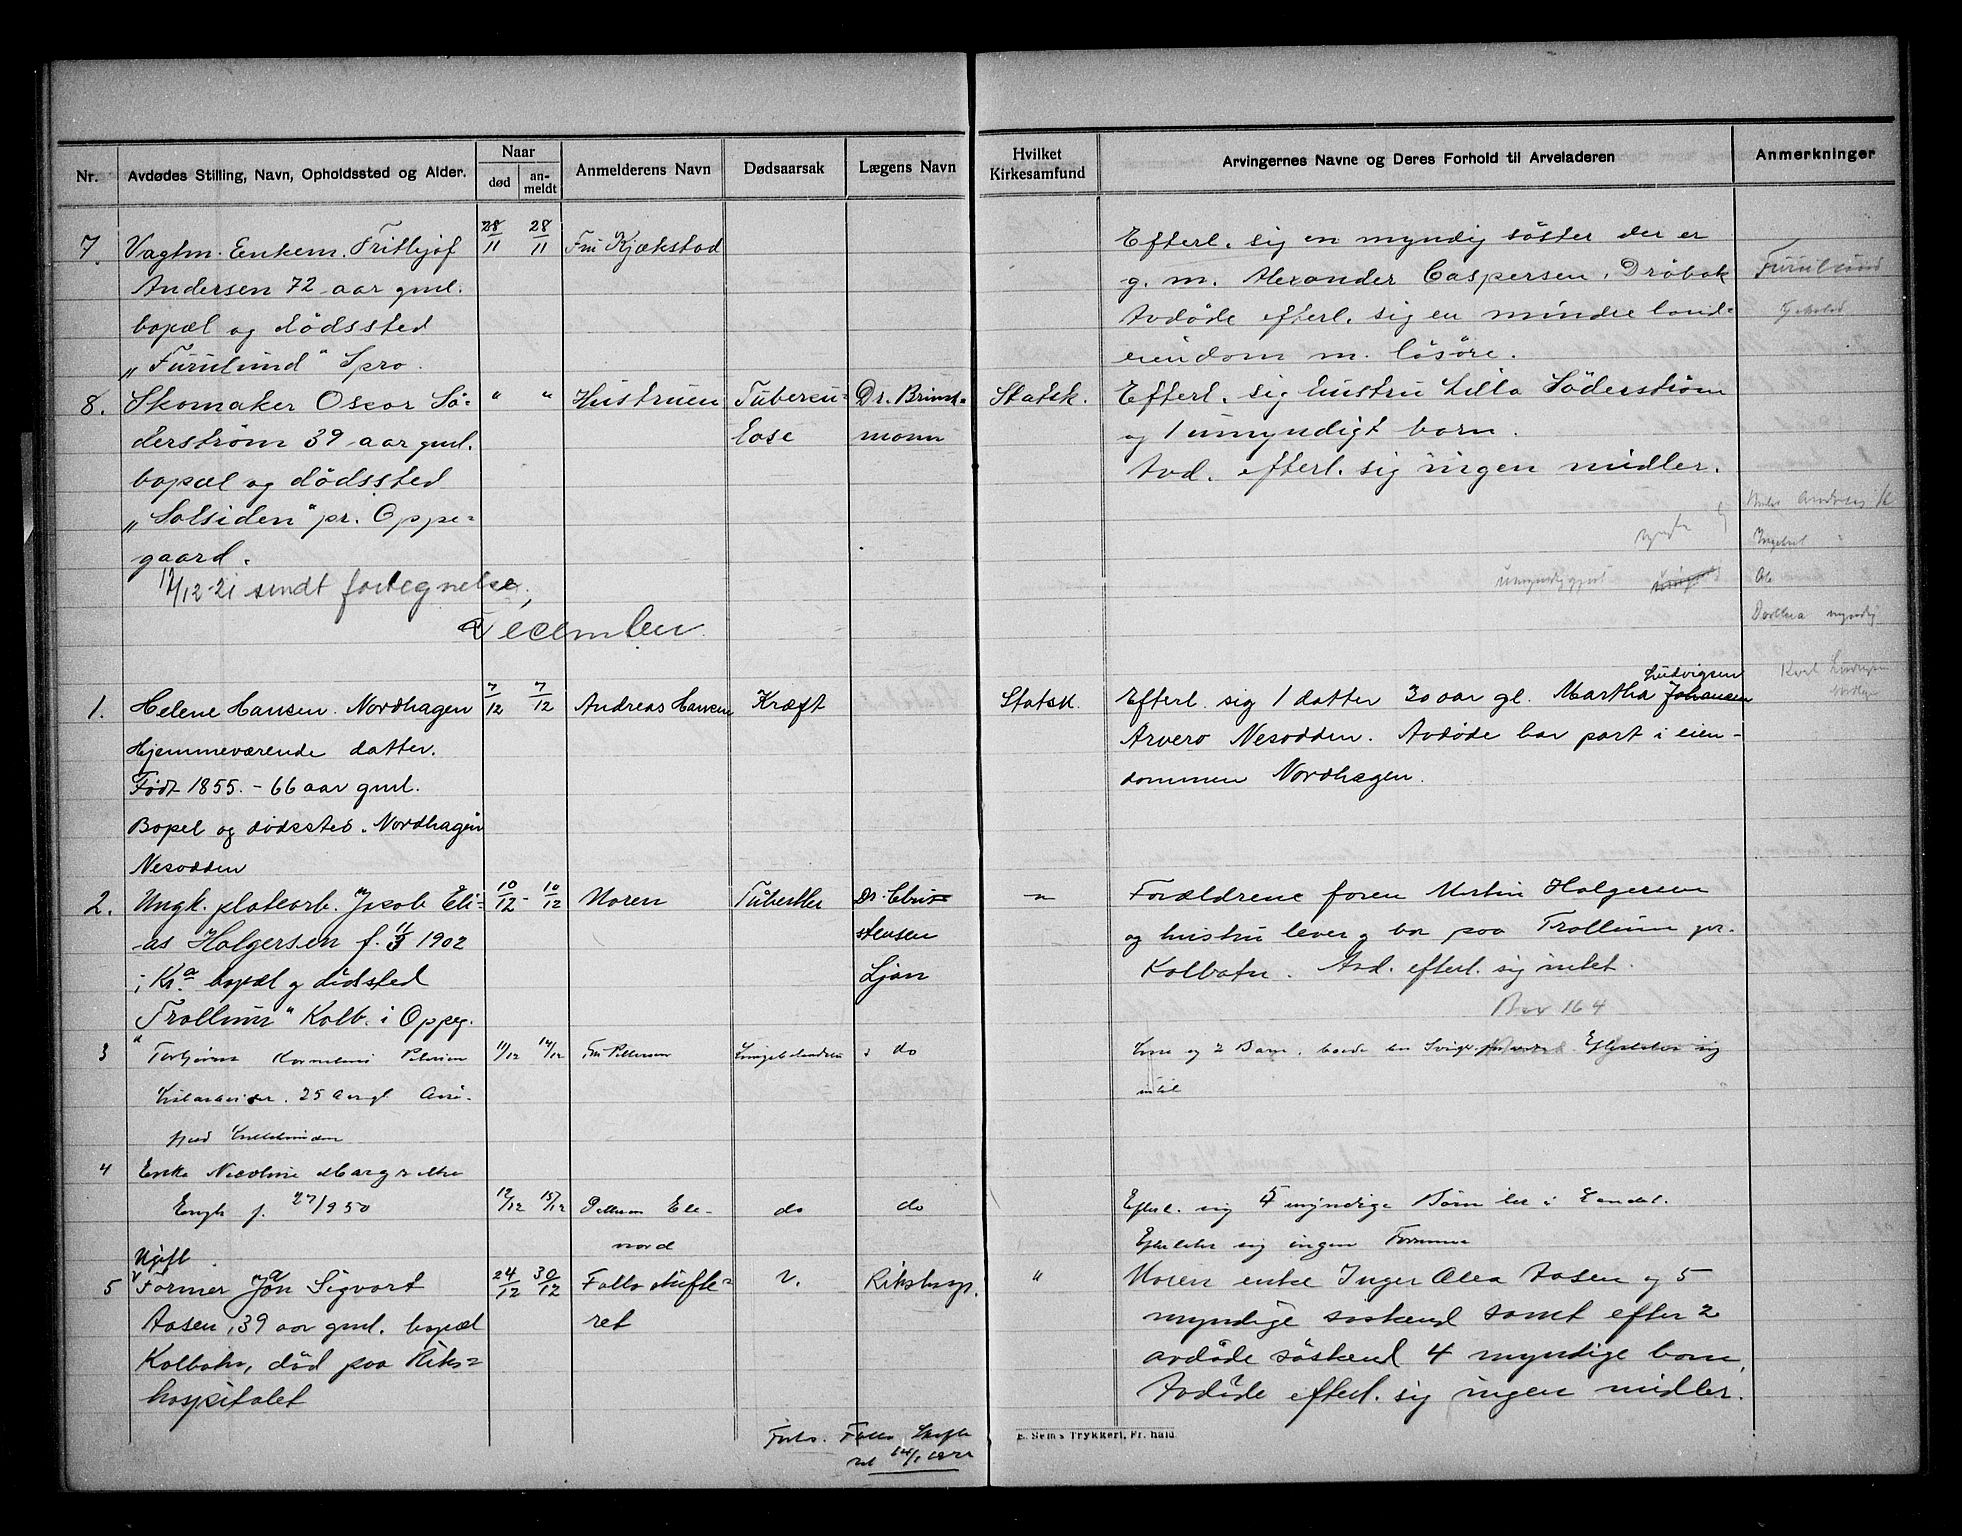 Nr.
Avdødes Stilling, Navn, Opholdssted og Alder.
Naar
død
an-
meldt
Anmelderens Navn
Dødsaarsak
Lægens Navn
Hvilket
Kirkesamfund
Arvingernes Navne og Deres Forhold til Arveladeren
Anmerkninger
7. Vagtm. Enkem. Frithjof 28/11 28/11 Fru Kjækstad
Andersen 72 aar gml.
bopæl og dødssted
"Furulund" Spro.
Efterl. sig en myndig søster der er
g. m. Alexander Caspersen, Drøbak
Avdøde efterl. sig en mindre land-
eiendom m. løsøre.
Furulund
8. Skomaker Oscar Sö- " " Hustruen Tubercu- Dr. Brinch- Statsk.
derstrøm 39 aar gml. lose mann
bopæl og dødssted
"Solsiden" pr. Oppe-
gaard.
Efterl. sig hustru Lilla Söderstrøm
og 1 umyndigt barn.
Avd. efterl. sig ingen midler.
17/12-21 sendt fortegnelse,
December
Ole
Dorthea myndig
1. Helene Hansen. Nordhagen 7/12 7/12 Andreas Hansen Kræft Statsk.
Hjemmeværende datter.
Født 1855. - 66 aar gml.
Bopel og dødssted. Nordhagen
Nesodden
Ludvigsen
Efterl. sig 1 datter 30 aar gl. Martha Johansen
Arvero Nesodden. Avdøde har part i eien-
dommen Nordhagen.
Karl Ludvigsen
2. Ungk. platearb. Jacob Eli- 10/12 - 10/12 Moren Dr. Chri-
as Holgersen f. 1902 stensen
i Kr.a bopæl og dødsted Ljan
"Trollium" Kolb. i Oppeg.
Forældrene foren Martin Holgersen
og hustru lever og bor paa Trollium pr.
Kolbotn. Avd. efterl. sig intet.
Box 164
3 Kornelius 11/12 14/12 Fru Pettersen do
25 Aar gl
og 2 Barn. Efterlater sig
intet
4 Enke Nicoline Margrethe
Engh f. 27/9 50 12/12 15/12 Pettersen Elle- do do
nord
Efterl. sig 5 myndige Børn
Efterlater sig ingen Formue
Ugift
5 Former Jon Sigvart 24/12 30/12 Follo skifte- Rikshosp. "
Aasen, 39 aar gml. bopæl ret
Kolbotn, død paa Riks-
hospitalet
Moren enke Inger Olea Aasen og 5
myndige søskend samt efter 2
avdøde søskend 4 myndige barn,
Avdøde efterl. sig ingen midler.
Follo Skifte
E. Sem's Trykkeri, Fr.hald